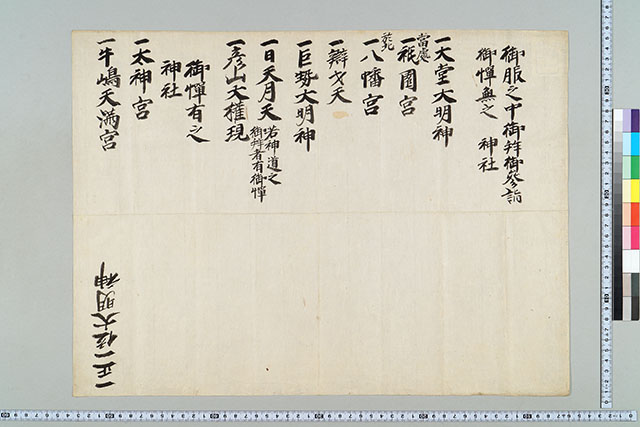 御服之中御拜御參詣
御憚無之　神社
一大堂大明神
當處
一祇園宮
於北
一八幡宮
一辯才天
一巨勢大明神
一日天月天
若神道之
御拜者有御憚
一彦山大權現
御憚有之
神社
一太神宮
一牛嶋天滿宮
一正一位大明神